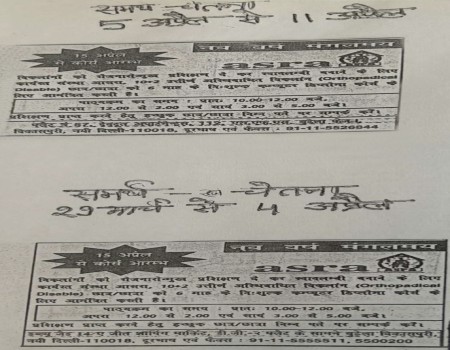 समर्थ चेतना
5 अप्रैल से 11 अप्रैल
15 अप्रैल
से कोर्स आरम्भ
नव वर्ष मंगलमय
asra
विकलांगों को रोजगारोन्मुख प्रशिक्षण दे कर स्वावलम्बी बनाने के लिए
कार्यरत संस्था आसरा, 10+2 उत्तीर्ण अस्थिबाधित विकलांग (Orthopadical
Disable) छात्र/छात्रा को 6 माह के निःशुल्क कम्प्यूटर डिप्लोमा कोर्स के
लिए आमंत्रित करती है।
पाठ्यक्रम का समय : प्रातः 10.00-12.00 बजे,
अपराह्न 12.00 से 2.00 एवं सायं 3.00 से 5.00 बजे।
प्रशिक्षण प्राप्त करने हेतु इच्छुक छात्र/छात्रा निम्न पते पर सम्पर्क करें।
विकासपुरी, नयी दिल्ली-110018, दूरभाष एवं फैक्स : 91-11-5526844
समर्थ - चेतना
29 मार्च से 4 अप्रैल
15 अप्रैल
से कोर्स आरम्भ
नव वर्ष मंगलमय
asra
विकलांगों को रोजगारोन्मुख प्रशिक्षण दे कर स्वावलम्बी बनाने के लिए
कार्यरत संस्था आसरा, 10+2 उत्तीर्ण अस्थिबाधित विकलांग (Orthopadical
Disable) छात्र/छात्रा को 6 माह के निःशुल्क कम्प्यूटर डिप्लोमा कोर्स के
लिए आमंत्रित करती है।
पाठ्यक्रम का समय : प्रातः 10.00-12.00 बजे,
अपराह्न 12.00 से 2.00 एवं सायं 3.00 से 5.00 बजे।
प्रशिक्षण प्राप्त करने हेतु इच्छुक छात्र/छात्रा निम्न पते पर सम्पर्क करें।
के सामने बुढेला विकासपुरी,
नयी दिल्ली-110018, दूरभाष एवं फैक्स : 91-11-5555511, 5500200